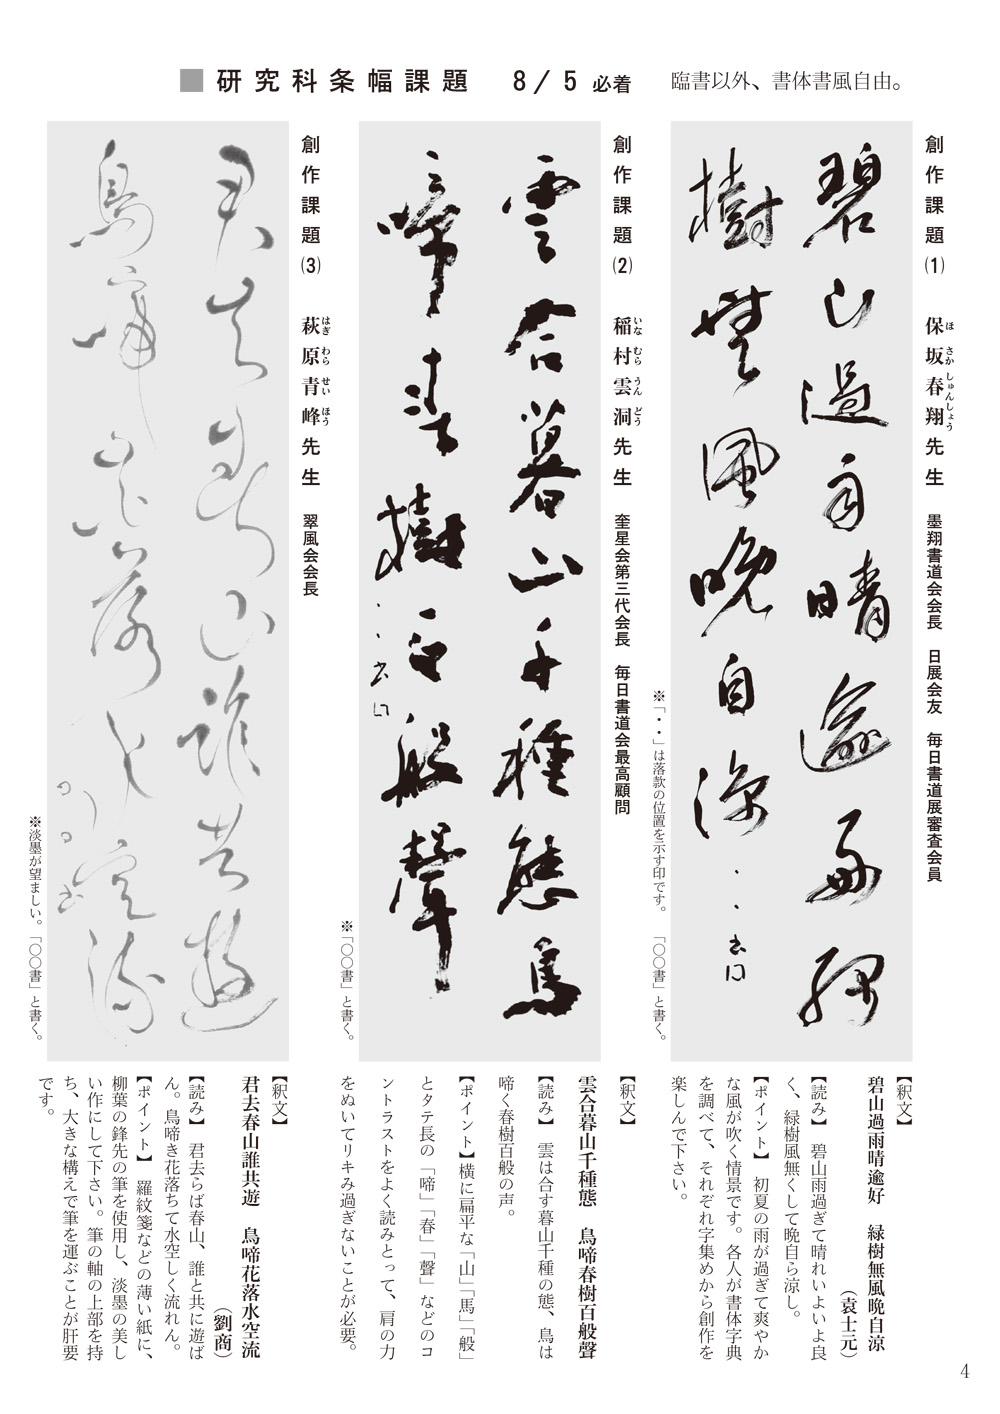 ■研究科条幅課題 8/5必着 臨書以外、書体書風自由。
創作課題(1) 保坂春翔先生 墨翔書道会会長 日展会友 毎日書道展審査会員
ほ さか しゅんしょう
碧山過雨晴逾好緑
樹無風晩自涼・・書
※「・・」は落款の位置を示す印です。「〇〇書」と書く。
【釈文】
碧山過雨晴逾好 緑樹無風晩自涼
(袁士元)
【読み】 碧山雨過ぎて晴れいよいよ良
く、緑樹風無くして晩自ら涼し。
【ポイント】 初夏の雨が過ぎて爽やか
な風が吹く情景です。各人が書体字典
を調べて、それぞれ字集めから創作を
楽しんで下さい。
創作課題(2) 稲村雲洞先生 奎星会第三代会長 毎日書道会最高顧問
いな むら うん どう
雲合暮山千種態鳥
啼春樹百般聲
・・書
※「〇〇書」と書く。
【釈文】
雲合暮山千種態 鳥啼春樹百般聲
【読み】 雲は合す暮山千種の態、鳥は
啼く春樹百般の声。
【ポイント】横に扁平な「山」「馬」「般」
とタテ長の「啼」「春」「聲」などのコ
ントラストをよく読みとって、肩の力
をぬいてリキみ過ぎないことが必要。
創作課題(3) 萩原青峰先生 翠風会会長
はぎ わら せい ほう
君去春山誰共遊
鳥啼花落水空流
書
※淡墨が望ましい。「〇〇書」と書く。
【釈文】
君去春山誰共遊 鳥啼花落水空流
(劉商)
【読み】 君去らば春山、誰と共に遊ば
ん。鳥啼き花落ちて水空しく流れん。
【ポイント】 羅紋箋などの薄い紙に、
柳葉の鋒先の筆を使用し、淡墨の美し
い作にして下さい。筆の軸の上部を持
ち、大きな構えで筆を運ぶことが肝要
です。
4